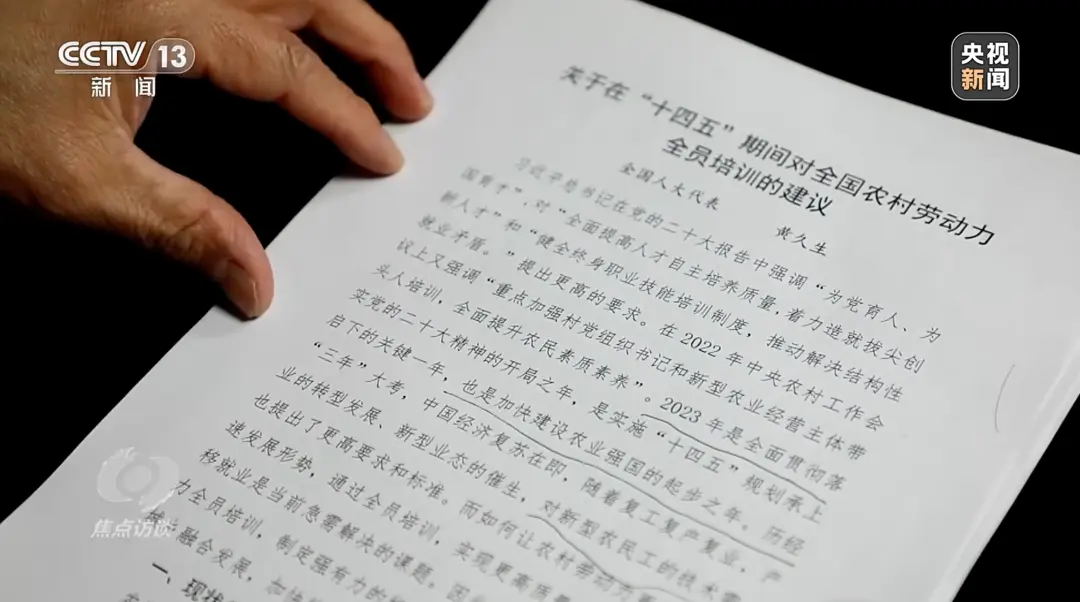 CCTV 13
新闻
央视
新闻
关于在“十四五”期间对全国农村劳动力
全员培训的建议
全国人大代表 黄久生
习近平总书记在党的二十大报告中强调“为党育人、为
国育才”，对“全面提高人才自主培养质量，着力造就拔尖创
新人才”和“健全终身职业技能培训制度，推动解决结构性
就业矛盾。”提出更高的要求。在2022年中央农村工作会
议上又强调“重点加强村党组织书记和新型农业经营主体带
头人培训，全面提升农民素质素养”。2023年是全面贯彻落
实党的二十大精神的开局之年，是实施“十四五”规划承上
启下的关键一年，也是加快建设农业强国的起步之年。历经
“三年”大考，中国经济复苏在即，随着复工复产复业，产
业的转型发展、新型业态的催生，对新型农民工的技术需
也提出了更高要求和标准。而如何让农村劳动力
速发展形势，通过全员培训，实现更高质
移就业是当前急需解决的课题。
力全员培训，制定强有力的
融合发展，加快
一、现状
焦点访谈